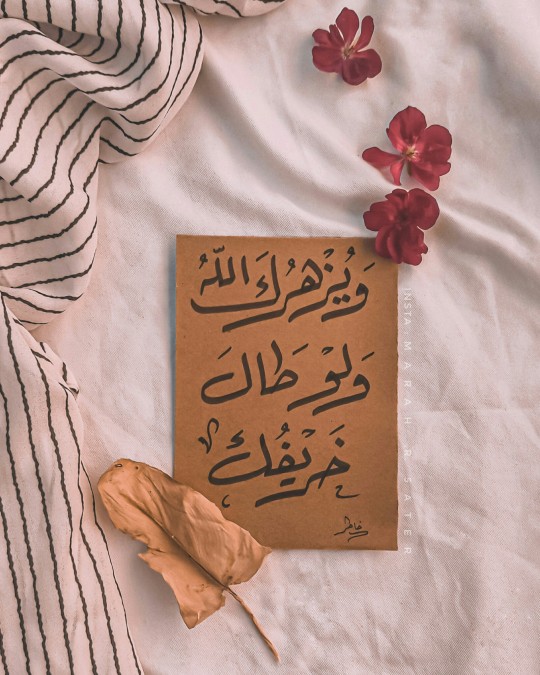 وَيُزْهرُكَ اللّهُ
وَلوْ طَالَ
خَريفُك
خاطر
INSTA MARAH.R.SATER